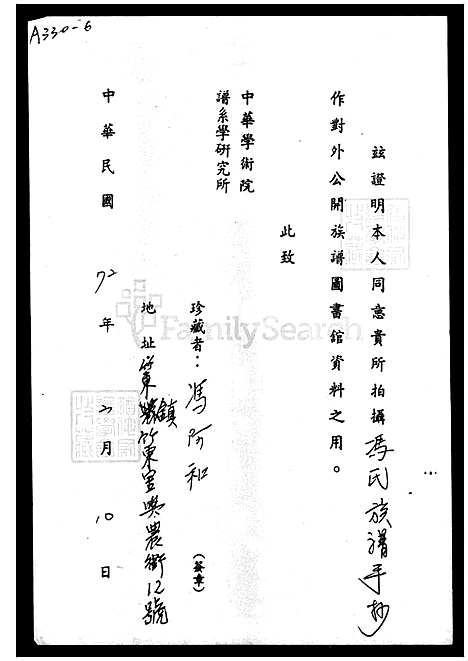 A330-6
玆證明本人同意貴所拍攝馮氏族譜手抄
作對外公開族譜圖書館資料之用。
此致
中華學術院
譜系學研究所
珍藏者：馮阿和（簽章）
地址竹東鎮竹東里興農街12號
中華民國72年2月10日
FamilySearch